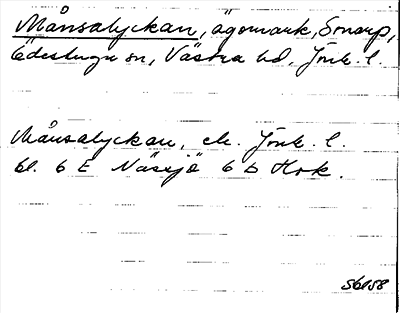 Månsalyckan, ägomark, Smarp,
Ödestugu sn, Västra hd, Jönk. l.
Månsalyckan, ek. Jönk. l.
bl. 6 E Nässjö 6 b Hok.
56158